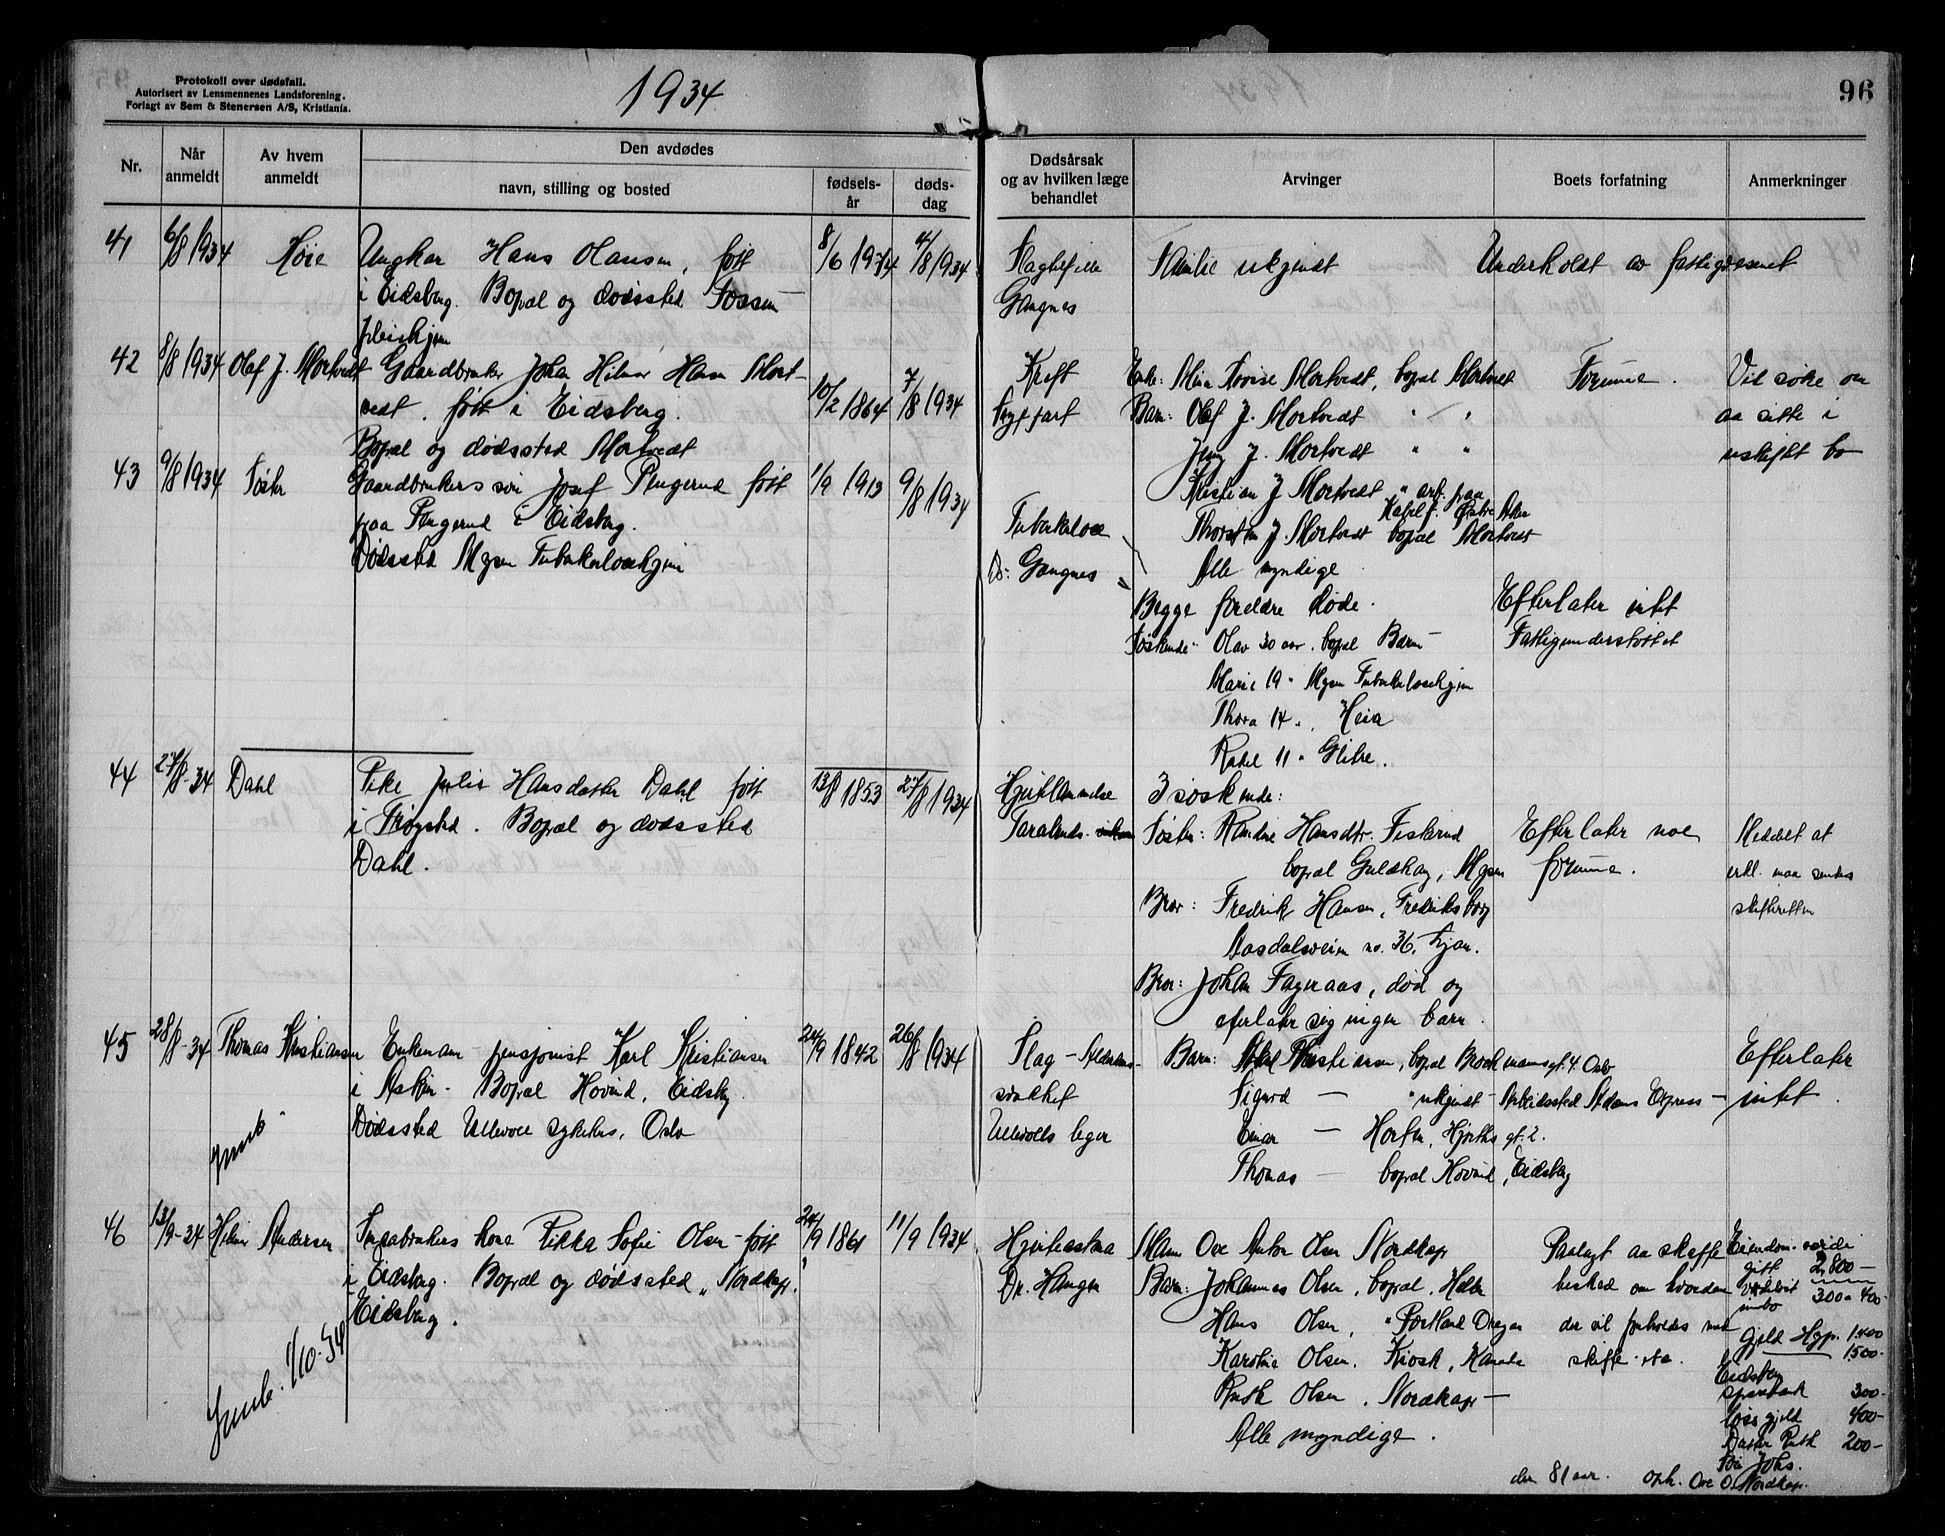 Protokoll over dødsfall.
Autorisert av Lensmennenes Landsforening.
Forlagt av Sem & Stenersen A/S, Kristiania.
1934
96
Nr.
Når anmeldt
Av hvem anmeldt
Den avdødes
navn, stilling og bosted
fødsels-år
døds-dag
Dødsårsak og av hvilken læge behandlet
Arvinger
Boets forfatning
Anmerkninger
41 6/8 1934 Høie Ungkar Hans Hansen, født 8/6 4/8 1934
i Eidsberg. Bopæl og dødssted Fossum
pleiehjem
Slagtilfelle
Gangnes
Familie ukjendt
Underholdt av fattigvesenet
42 8/8 1934 Olaf J. Mortvedt Gaardbruker Johan Hilmar Hansen Mort-
vedt. født i Eidsberg. 10/2 1864 7/8 1934
Bopæl og dødssted Mortvedt
Kreft
Enke: Mina Lovise Mortvedt, bopæl Mortvedt
Barn: Olaf J. Mortvedt " "
Jenny J. Mortvedt " "
Kristian J. Mortvedt " arb. paa
Thorsten J. Mortvedt bopæl Mortvedt
Alle myndige
Formue.
Vil søke om
aa sitte i
uskiftet bo
43 9/8 1934 Søster Gaardbrukers søn Josef Pengerud født 1/9 1913 9/8 1934
paa Pengerud i Eidsberg.
Dødssted Mysen Tuberkulosehjem
Tuberkulose
Dr: Gangnes
Begge foreldre døde.
Søskende: Olav 30 aar. bopæl
Marie 19 " Mysen Tuberkulosehjem
Thora 14 " Heia
Rakel 11 " Glitre.
Efterlater intet
Fattigunderstøttet
44 27/8-34 Dahl Pike Julie Hansdatter Dahl født 13/8 1853 27/8 1934
i Trøgstad. Bopæl og dødssted
Dahl.
Hjertelammelse
3 søskende:
Søster: Randine Hansdtr. Fisterud
bopæl Guldhaug, Mysen
Bror: Fredrik Hansen, Fredriksborg
Aasdalsveien no. 36, Ljan.
Bror: Johan Fageraas, død og
efterlater sig ingen barn.
Efterlater noe
formue.
Meddelt at
erkl. maa sendes
skifteretten
45 28/8-34 Thomas Kristiansen Enkemann pensjonist Karl Kristiansen 24/9 1842 26/8 1934
i Askim - Bopæl Hovind, Eidsberg
Dødssted Ullevoll sykehus, Oslo
Slag - Alderdoms-
svakhet
Ullevolls leger
Barn: Kristiansen, bopæl Brochmannsgt. 4. Oslo
Sigurd — " ukjendt - Arbeidssted Adams Express -
Einar — Horten, Hjorths gt. 2.
Thomas — bopæl Hovind, Eidsberg
Efterlater
intet.
46 13/9-34 Hilmar Andersen Smaabrukers kone Rikka Sofie Olsen - født 24/9 1861 11/9 1934
i Eidsberg. Bopæl og dødssted "Nordkap"
Eidsberg.
1/10-34
Hjerteastma
Dr. Haugen
Mann Ove Anton Olsen Nordkap
Barn: Johannes Olsen, bopæl.
Hans Olsen, " Portland Oregon
Karoline Olsen, Kiosk, Kanada
Ruth Olsen, Nordkap -
Alle myndige.
Paalagt aa skaffe
beskjed om hvordan
der vil forholdes med
skifte etc.
Eiendom. verdi
2,800-
indbo 300 a 400-
Gjeld Hyp. 1,400
1500-
Eidsberg
Sparebank 300-
Løs gjeld 400-
Datter Ruth 200-
Søn Johs.
den 81 aar. Oph. Ove O. Nordkap.